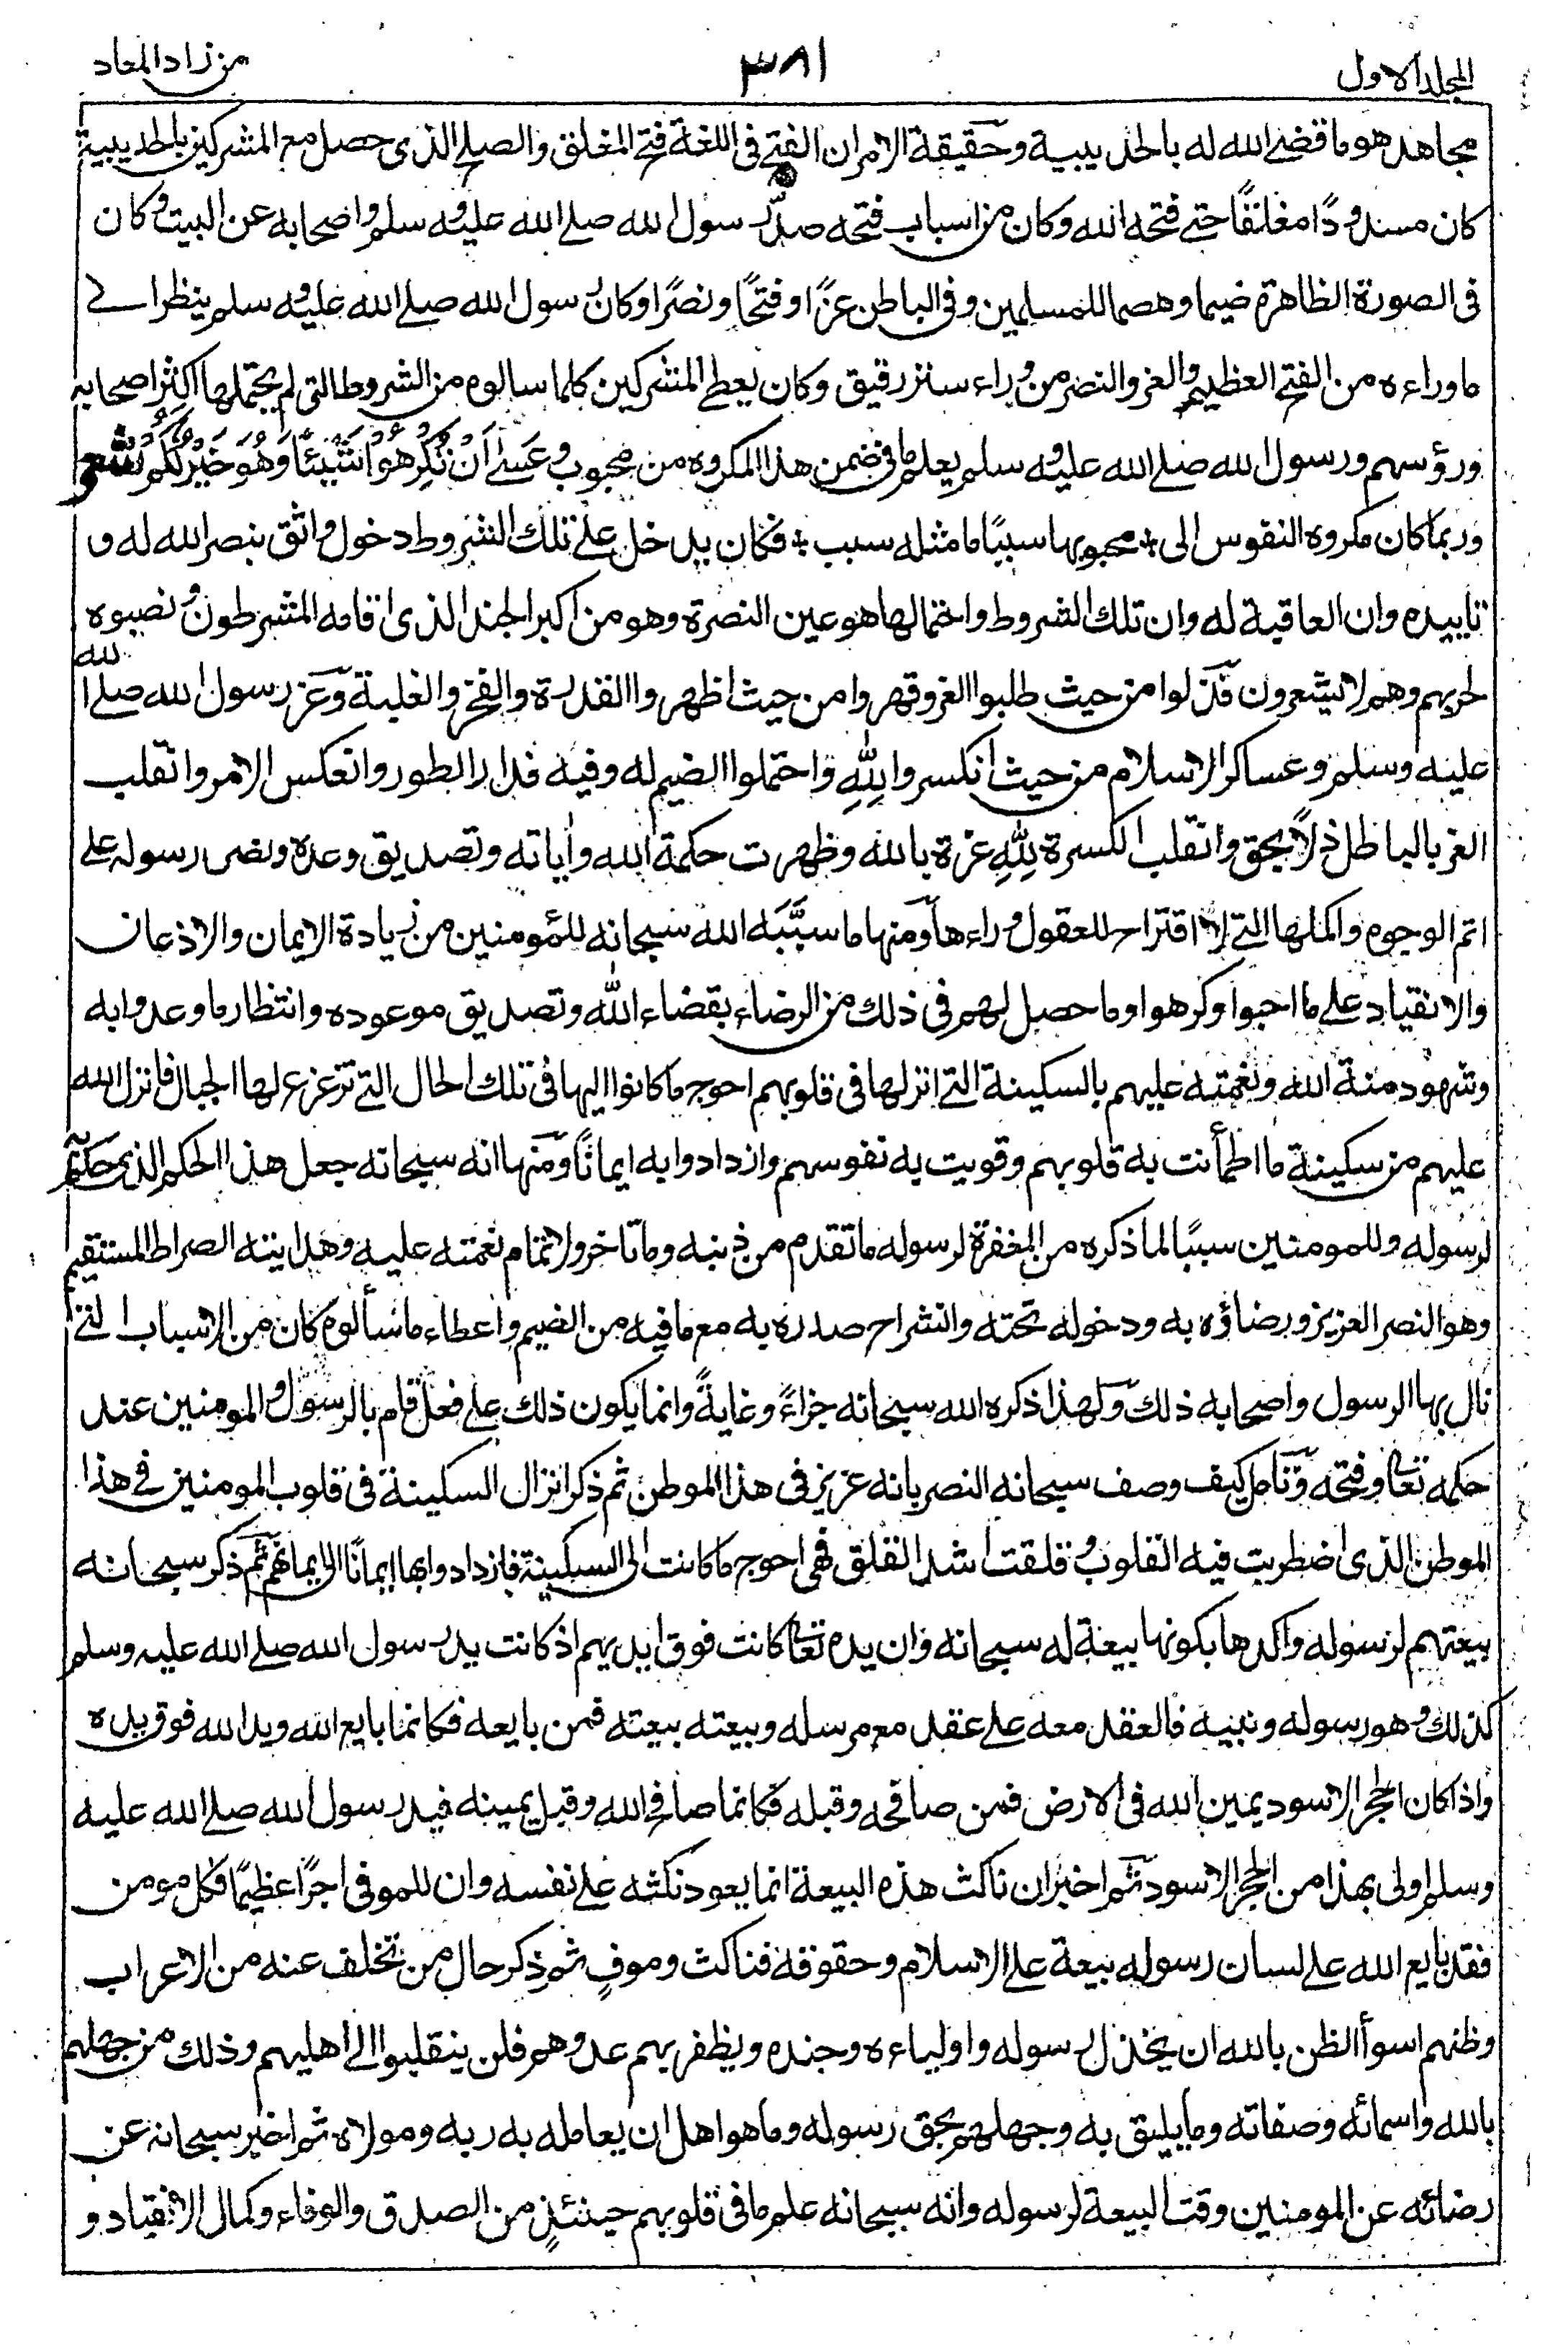 المجلد الاول
٣٨١
من زاد المعاد
مجاهد هو ما قضى الله له بالحديبية وحقيقة الامر ان الفتح فى اللغة فتح المغلق والصلح الذى حصل مع المشركين بالحديبية
كان مسدودًا مغلقًا حتى فتحه الله وكان من اسباب فتحه صدّ رسول الله صلى الله عليه وسلم واصحابه عن البيت وكان
فى الصورة الظاهرة ضيما وهضما للمسلمين وفى الباطن عزًا وفتحًا ونصرًا وكان رسول الله صلى الله عليه وسلم ينظر الى
ما وراءه من الفتح العظيم والعز والنصر من وراء ستر رقيق وكان يعطى المشركين كلما سالوه من الشروط التى لم يحتملها اكثر اصحابه
ورؤسهم ورسول الله صلى الله عليه وسلم يعلم ما فى ضمن هذا المكروه من محبوب وَعَسٰى اَنْ تَكْرَهُوْا شَيْئًا وَهُوَ خَيْرٌ لَّكُمْ شعر
وربما كان مكروه النفوس الى ÷ محبوبها سببًا ما مثله سبب ÷ فكان يدخل على تلك الشروط دخول واثق بنصر الله له و
تاييده وان العاقبة له وان تلك الشروط واحتمالها هو عين النصرة وهو من اكبر الجند الذى اقامه المشترطون ونصبوه
لحربهم وهم لا يشعرون فذلوا من حيث طلبوا العز وقهروا من حيث اظهروا القدرة والفخر والغلبة وعز رسول الله صلى الله
عليه وسلم وعساكر الاسلام من حيث انكسروا لِلّٰهِ واحتملوا الضيم له وفيه فدار الطور وانعكس الامر وانقلب
العز بالباطل ذلاً بحق وانقلب الكسرة لِلّٰهِ عزة بالله وظهرت حكمة الله واٰياته وتصديق وعده ونصر رسوله على
اتم الوجوه واكملها التى لا اقتراح للعقول وراءها ومنها ما سبَّبَه الله سبحانه للمؤمنين من زيادة الايمان والاذعان
والانقياد على ما احبوا وكرهوا وما حصل لهم فى ذلك من الرضاء بقضاء الله وتصديق موعوده وانتظار ما وعدوا به
وشهود منة الله ونعمته عليهم بالسكينة التى انزلها فى قلوبهم احوج ما كانوا اليها فى تلك الحال التى تزعزع لها الجبال فانزل الله
عليهم من سكينة ما اطمأنت به قلوبهم وقويت به نفوسهم وازدادوا به ايمانًا ومنها انه سبحانه جعل هذا الحكم الذى حكم
لرسوله وللمومنين سببًا لما ذكره من المغفرة لرسوله ما تقدم من ذنبه وما تاخر ولاتمام نعمته عليه وهدايته الصراط المستقيم
وهو النصر العزيز ورضاؤه به ودخوله تحته وانشراح صدره به مع ما فيه من الضيم واعطاء ما سألوه كان من الاسباب التى
نال بها الرسول واصحابه ذلك ولهذا ذكره الله سبحانه جزاءً وغايةً وانما يكون ذلك على فعل قام بالرسول والمومنين عند
حكمه تعالى وفتحه وتامل كيف وصف سبحانه النصر بانه عزيز فى هذا الموطن ثم ذكر انزال السكينة فى قلوب المومنين فى هذا
الموطن الذى اضطربت فيه القلوب وقلقت اشد القلق فهى احوج ما كانت الى السكينة فازدادوا بها ايمانًا الى ايمانهم ثم ذكر سبحانه
بيعتهم لرسوله واكدها بكونها بيعة له سبحانه وان يده تعالى كانت فوق ايديهم اذ كانت يد رسول الله صلى الله عليه وسلم
كذلك وهو رسوله ونبيه فالعقد معه على عقد مع مرسله وبيعته بيعته فمن بايعه فكانما بايع الله ويد الله فوق يده
واذا كان الحجر الاسود يمين الله فى الارض فمن صافحه وقبله فكانما صافح الله وقبل يمينه فيد رسول الله صلى الله عليه
وسلم اولى بهذا من الحجر الاسود ثم اخبر ان ناكث هذه البيعة انما يعود نكثه على نفسه وان للموفى اجرًا عظيمًا فكل مومن
فقد بايع الله على لسان رسوله بيعة على الاسلام وحقوقه فناكث وموفٍ ثم ذكر حال من تخلف عنه من الاعراب
وظنهم اسوأ الظن بالله ان يخذل رسوله واولياءه وجنده ويظفر بهم عدوهم فلن ينقلبوا الى اهليهم وذلك من جهلهم
بالله واسمائه وصفاته وما يليق به وجهلهم بحق رسوله وما هو اهل ان يعامله به ربه ومولاه ثم اخبر سبحانه عن
رضائه عن المومنين وقت البيعة لرسوله وانه سبحانه علم ما فى قلوبهم حينئذٍ من الصدق والوفاء وكمال الانقياد و